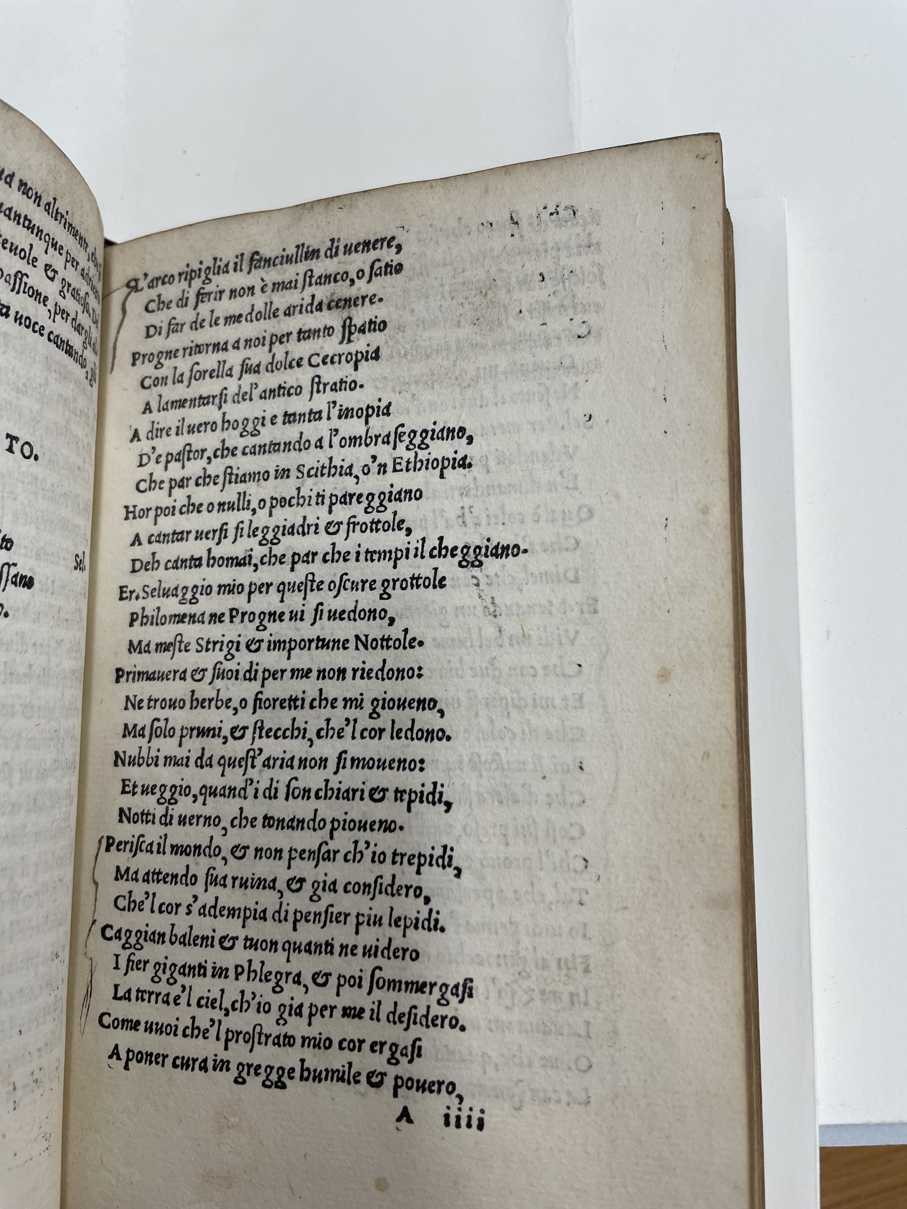 ua non altrimenti, che
uantunque per
euole & gratiosa,
passione, per dargli
ta uoce cantando,
TO.
ito
Sel.
ssano
o.
L'arco ripiglia il fanciullin di uenere,
Che di ferir non è mai stanco, o satio
Di far de le medolle arida cenere.
Progne ritorna a noi per tanto spatio
Con la sorella sua dolce Cecropia
A lamentarsi del'antico stratio.
A dire il uero hoggi e tanta l'inopia
D'e pastor, che cantando a l'ombra seggiano,
Che par che stiamo in Scithia, o'n Ethiopia.
Hor poi che o nulli, o pochi ti pareggiano
A cantar uersi si leggiadri & frottole,
Deh canta homai, che par che i tempi il cheggiano.
Er. Seluaggio mio per queste oscure grottole
Philomena ne Progne ui si uedono,
Ma meste Strigi & importune Nottole.
Primauera & suoi di per me non riedono:
Ne trouo herbe, o fioretti che mi gioueno,
Ma solo pruni, & stecchi, che'l cor ledono.
Nubbi mai da quest'aria non si moueno:
Et ueggio, quand'i di son chiari & tepidi,
Notti di uerno, che tonando pioueno.
Perisca il mondo, & non pensar ch'io trepidi,
Ma attendo sua ruina, & gia considero,
Che'l cor s'adempia di pensier piu lepidi.
Caggian baleni & tuon quanti ne uidero
I fier giganti in Phlegra, & poi sommergasi
La terra e'l ciel, ch'io gia per me il desidero.
Come uuoi che'l prostrato mio cor ergasi
A poner cura in gregge humile & pouero,
A iiii